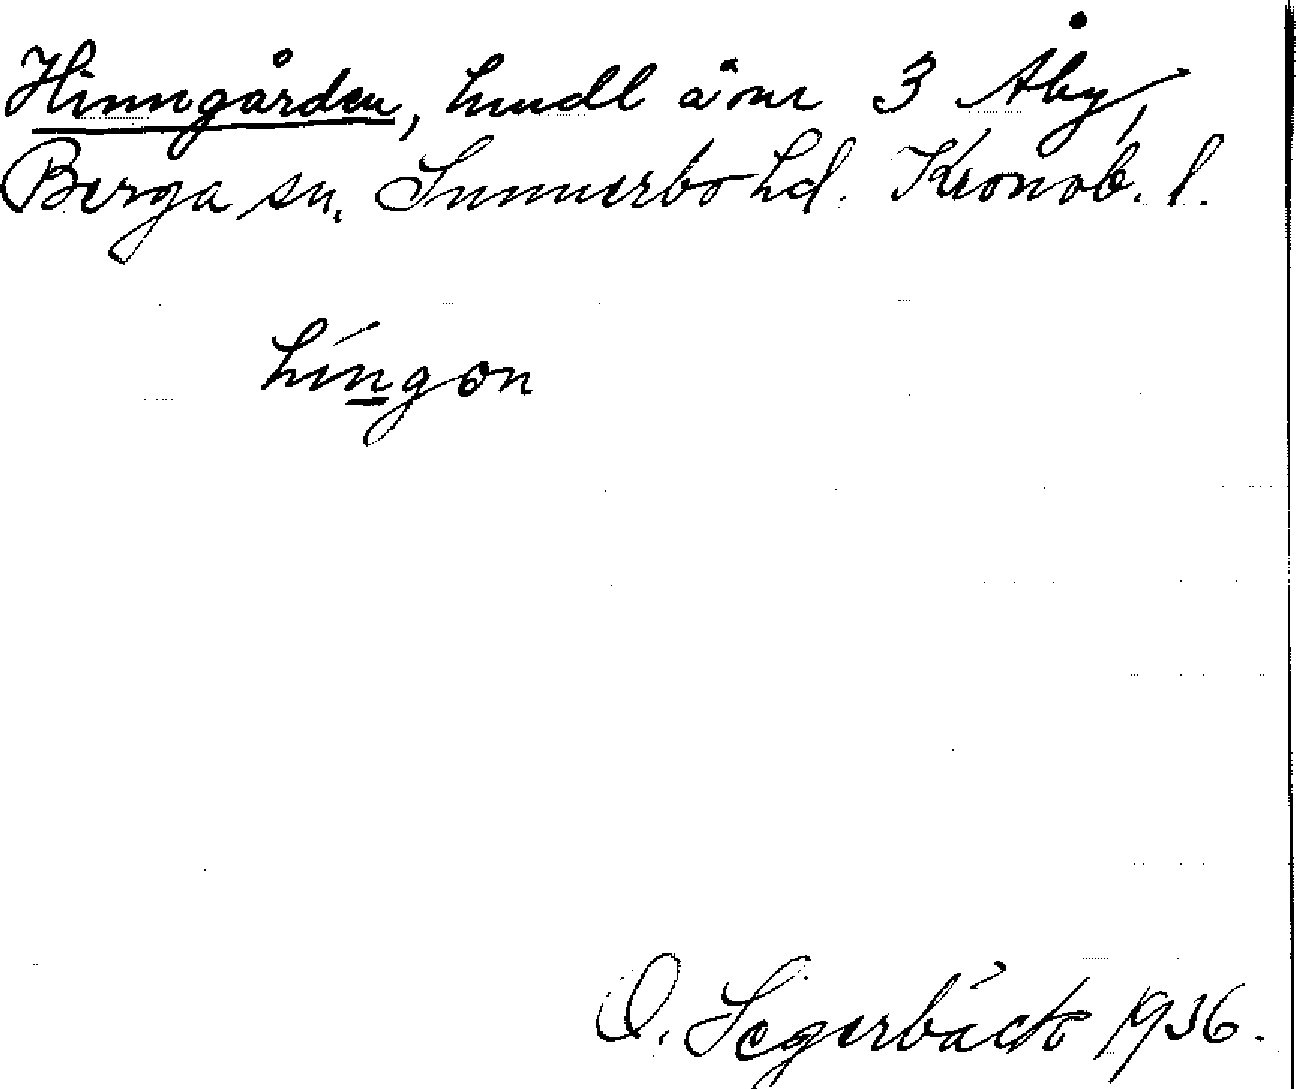 Hinngården, hmdl å nr 3 Åby,
Berga sn. Sunnerbo hd. Kronob. l.
hingon
O. Segerbäck 1936.